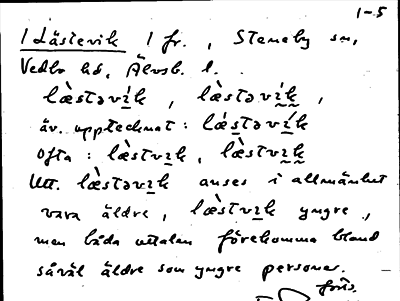 1-5
1 Lästevik 1 fr., Steneby sn,
Vedbo hd, Älvsb. l.
læ̀stəvi̲k, læ̀stəvi̲k,
äv. upptecknat: lǽstəvi̲k
Ofta: læ̀stvi̲k, læ̀stvi̲k
Utt. læ̀stəvi̲k anses i allmänhet
vara äldre, læ̀stvi̲k yngre,
men båda uttalen förekomma bland
såväl äldre som yngre personer.
forts.